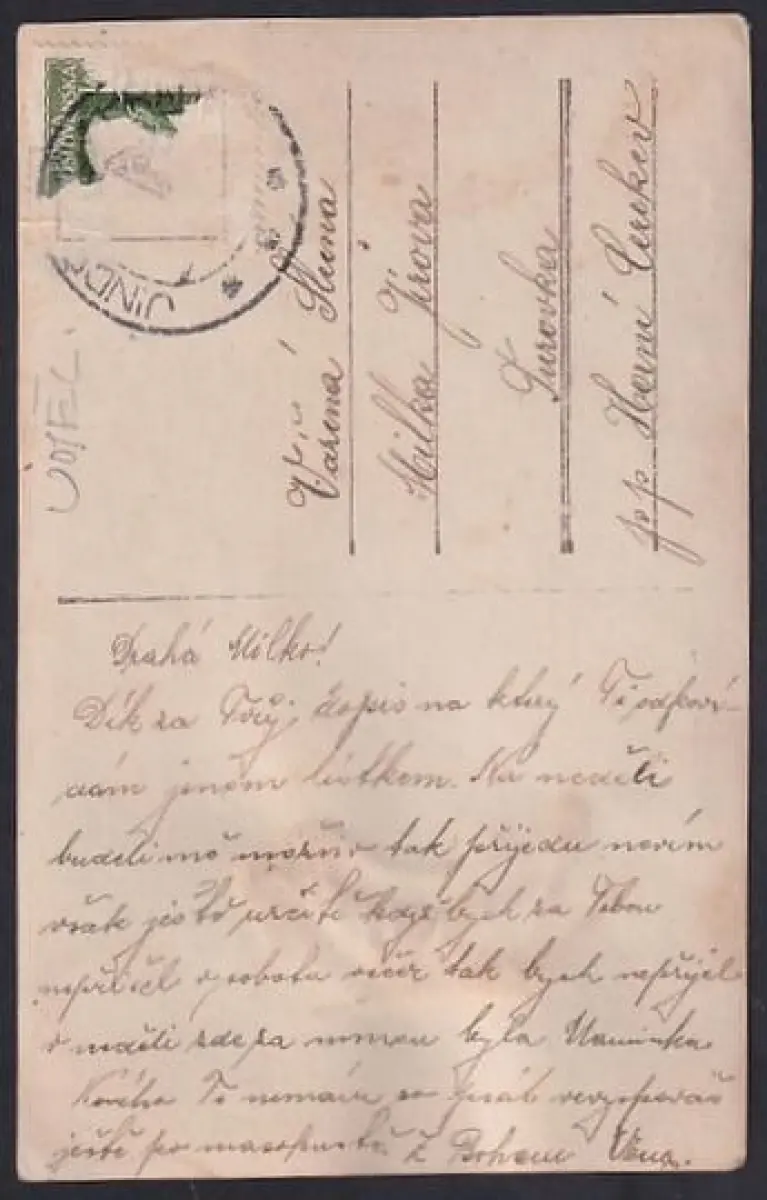 JIND
Vážená Slečna
Milka Jírova
Ďurovka
p p Horní Cerekev
Drahá Milko!
Dík za Tvůj dopis na který Ti odpoví-
dám jenom lístkem. Na neděli
budeli mě možno tak přijedu nevím
však ještě určitě když bych za Tebou
nepřišel v sobotu večír tak bych nepřijel
v neděli zde za mnou byla Maminka
Nového Ti nemám co psát
ještě po masopustě. S Bohem Véna.